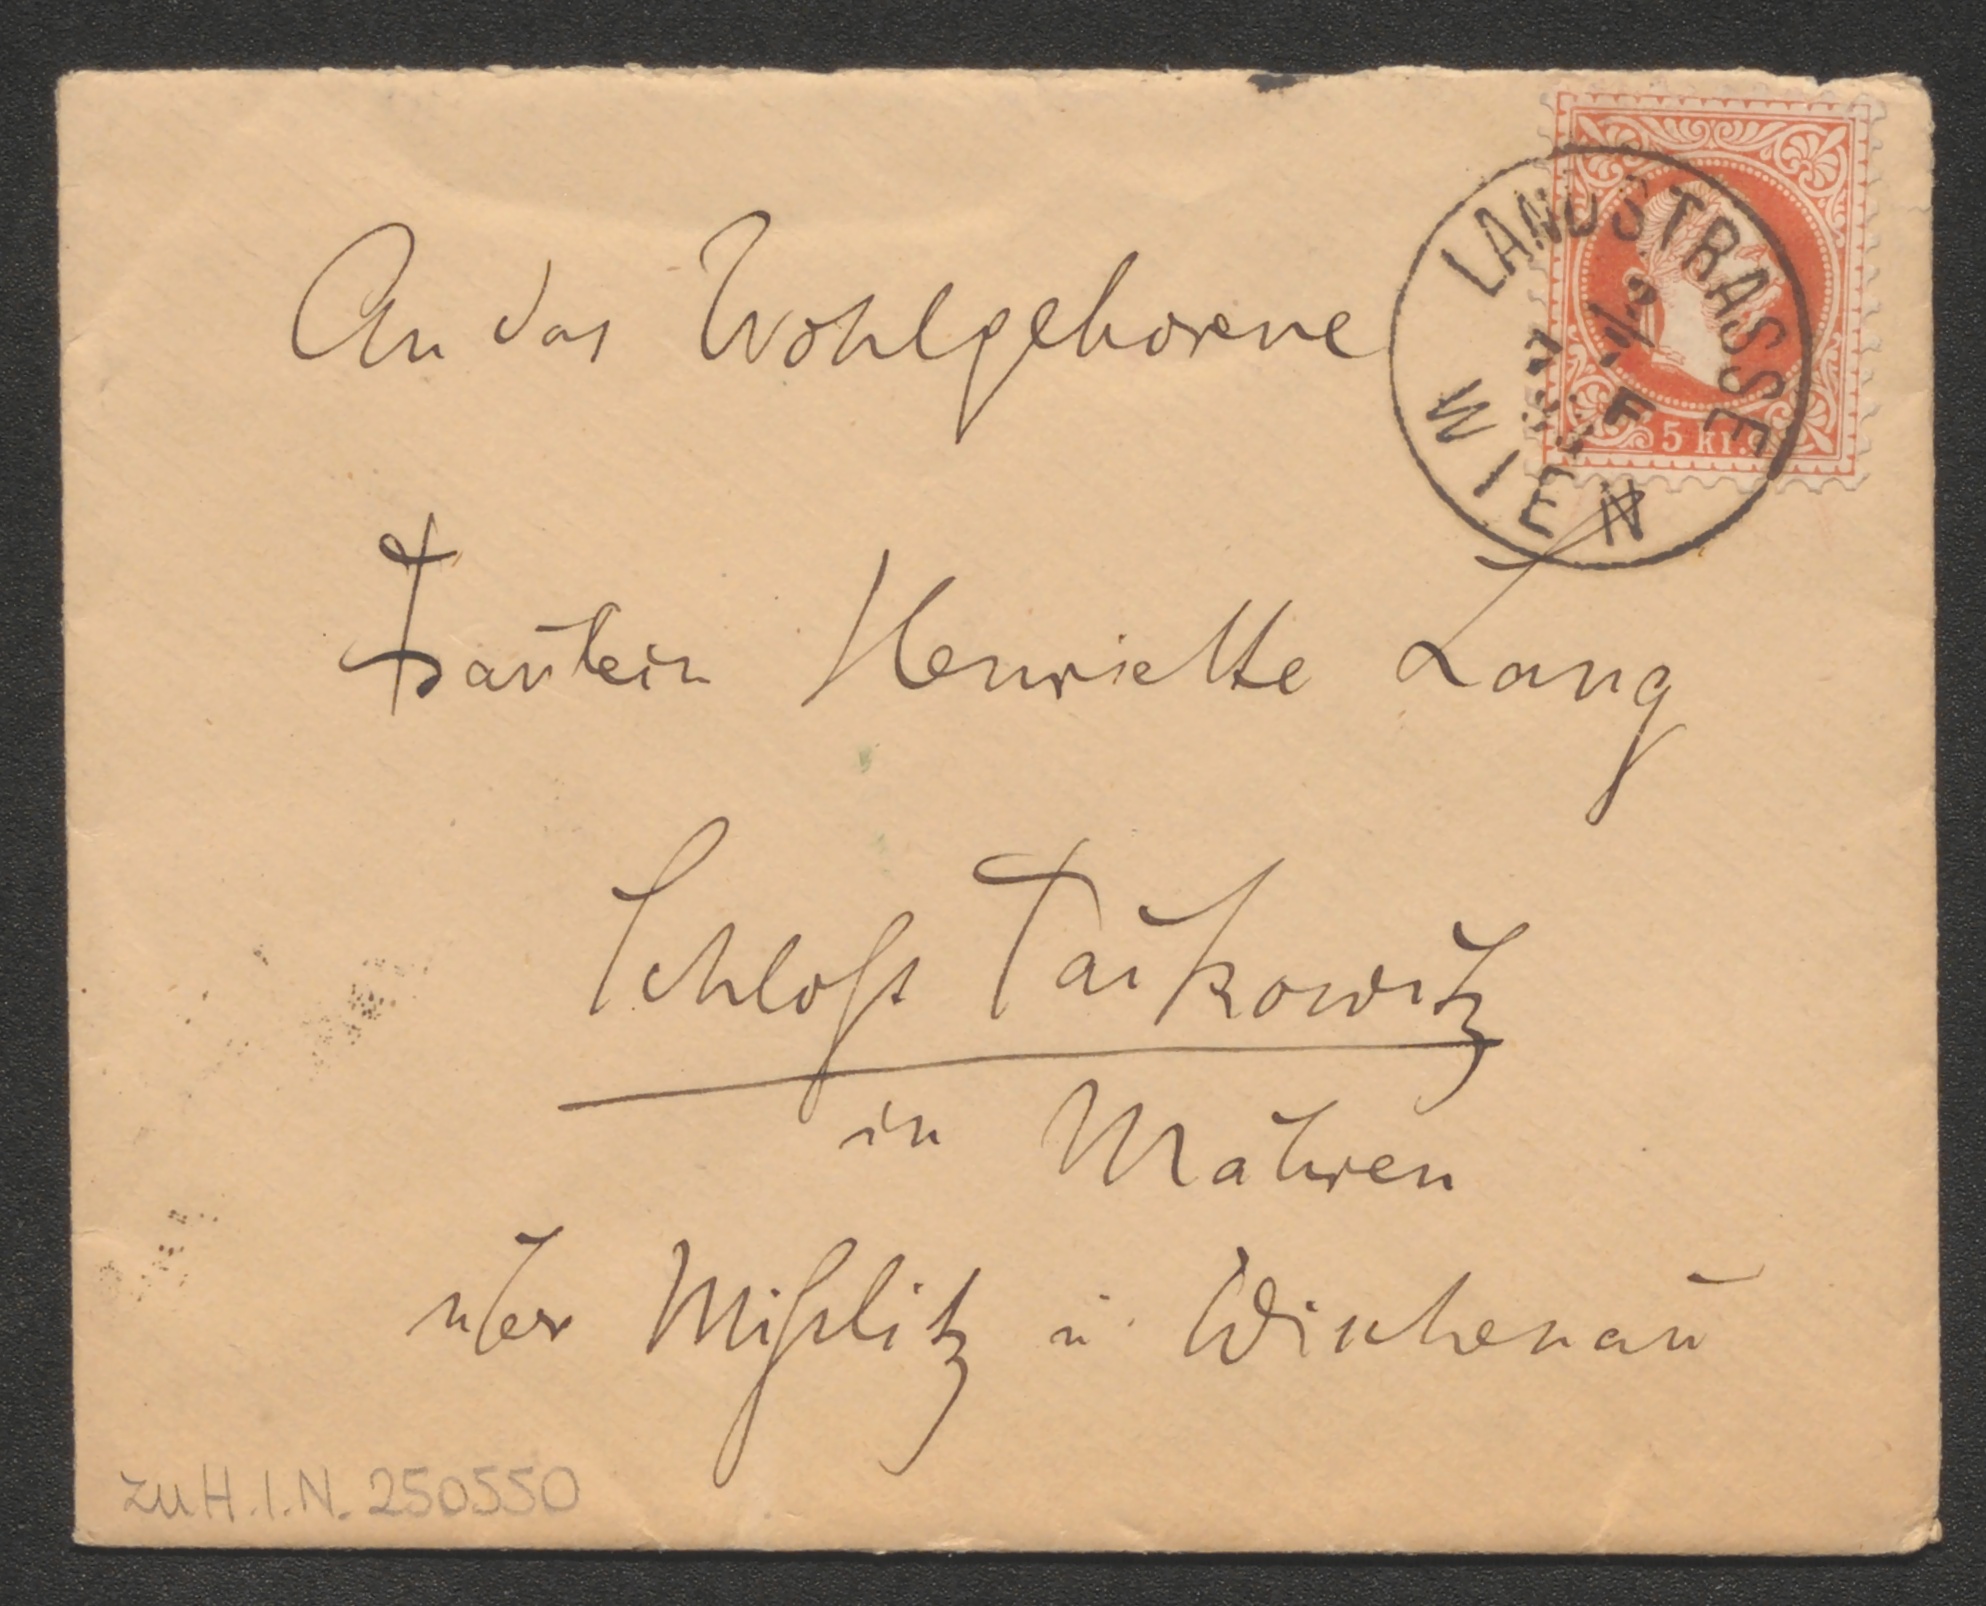 LANDSTRASSE
WIEN
F
5 kr.
An das Wohlgeborne
Fräulein Henriette Lang
Schloß Taikowitz
in Mähren
über Mißlitz u. Wischenau
zu H.I.N. 250550